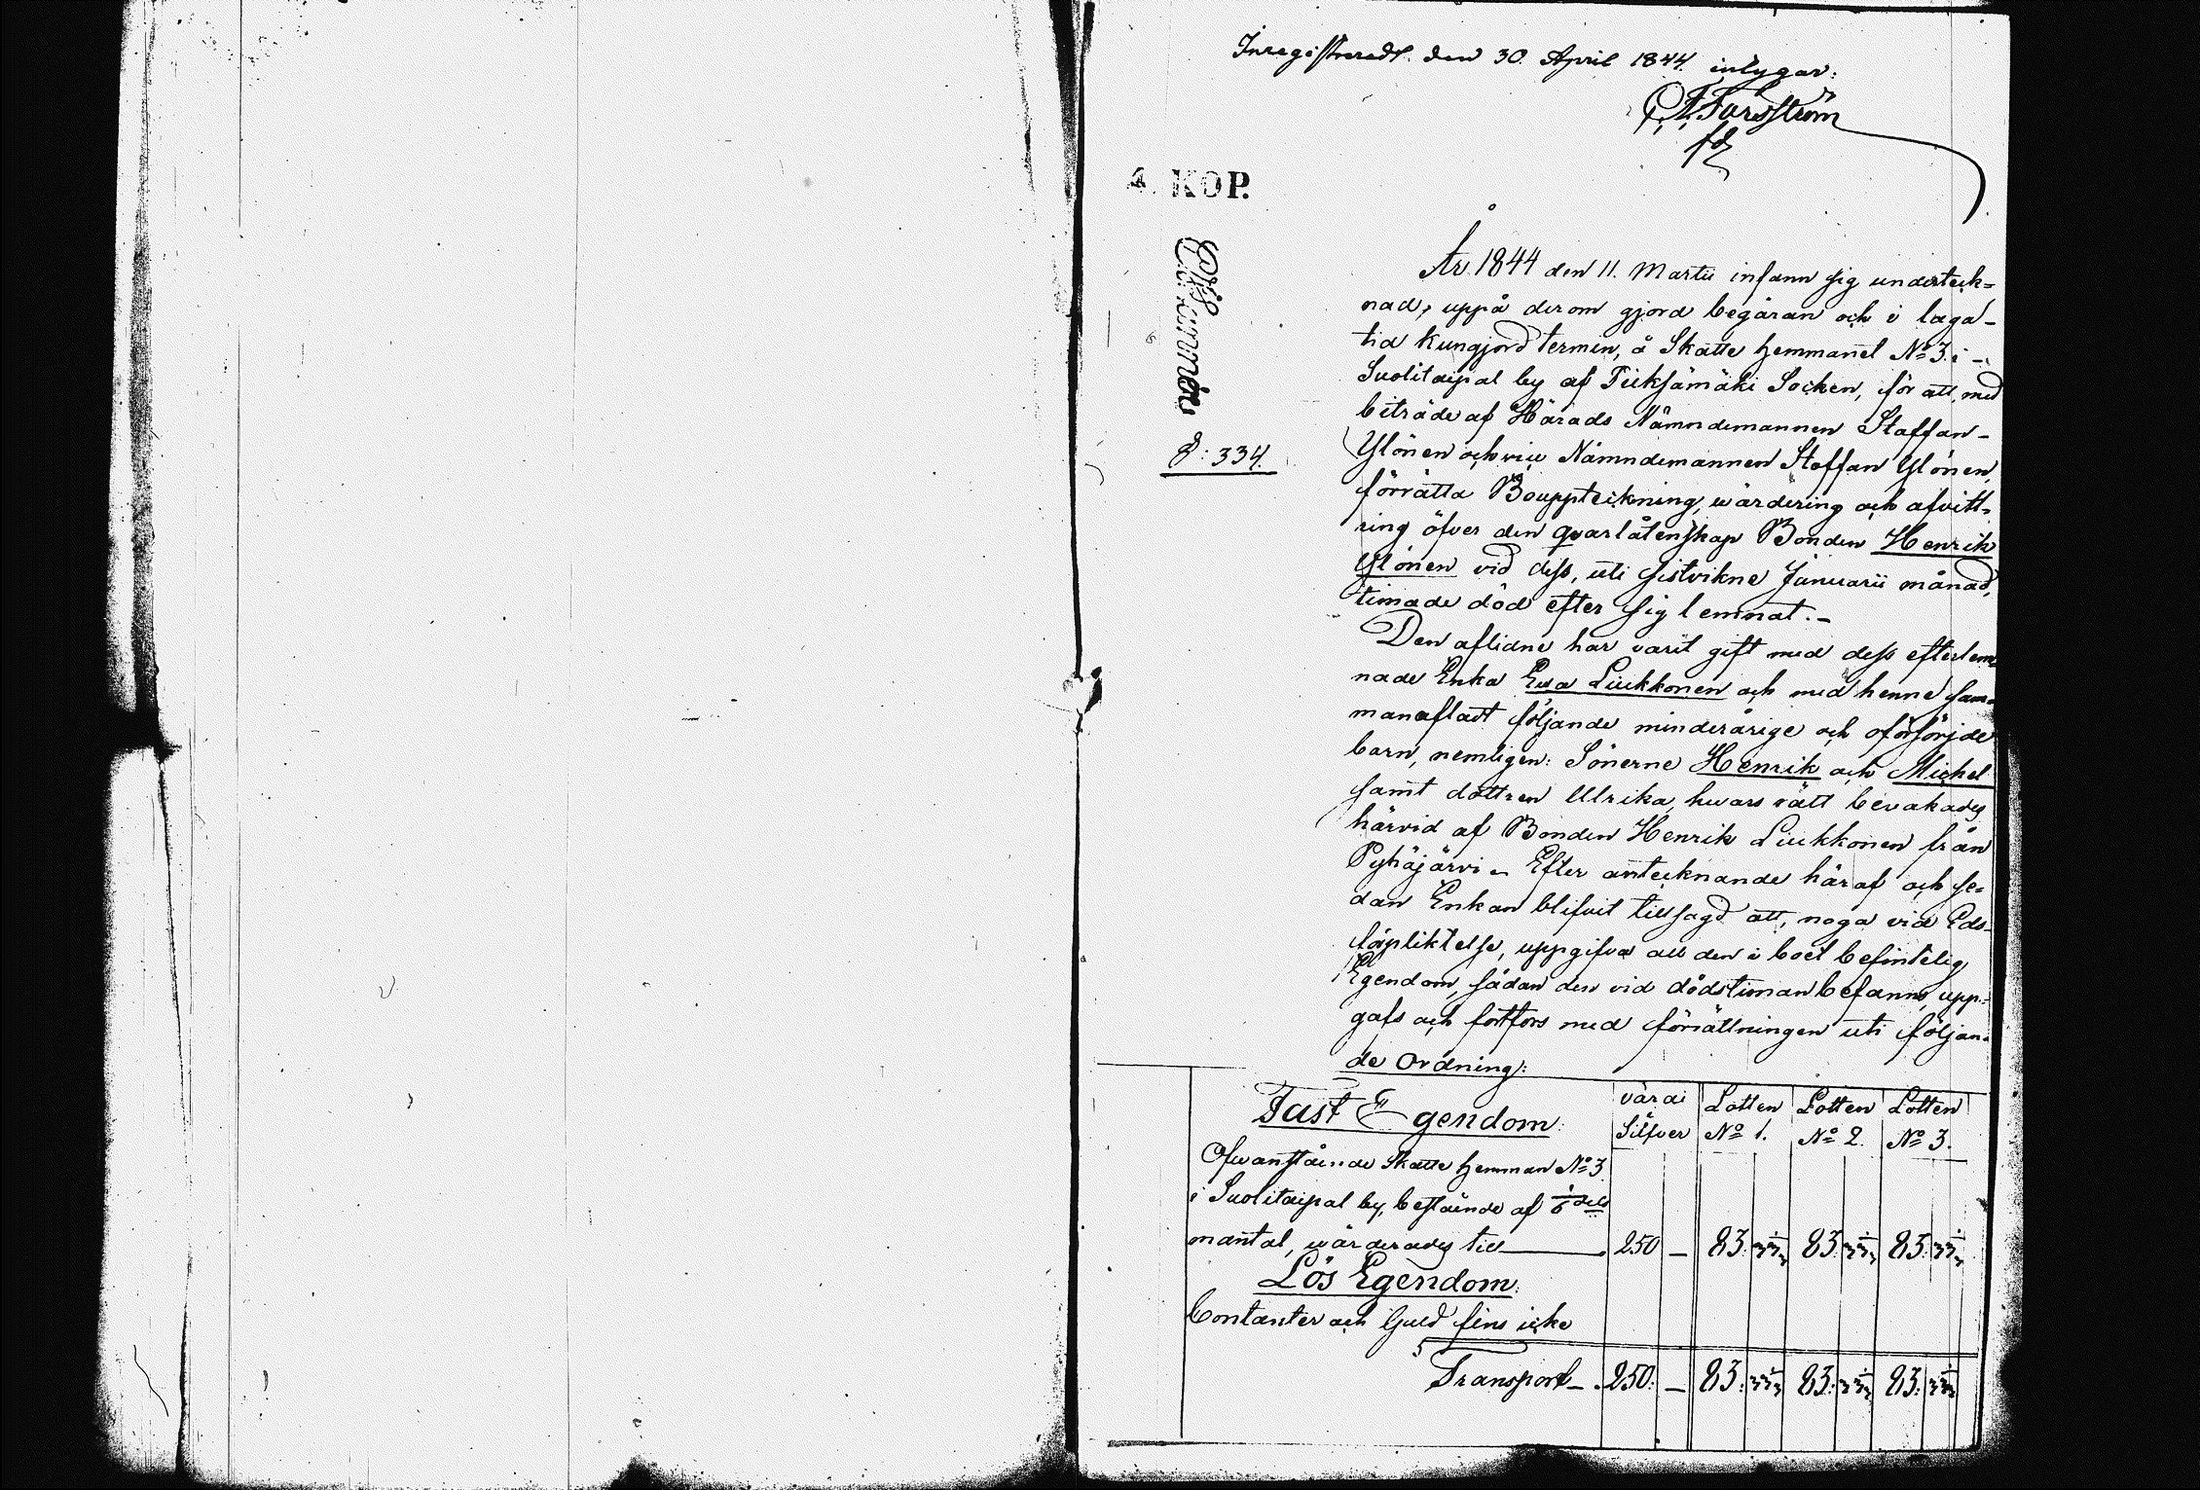 Inregistreradt den 30. April 1844. intygar:
C. A. Fursström
4. KOP.
P: 334.
År 1844 den 11. Martii infann sig underteck=
nad, uppå derom gjord begäran och i laga-
tid kungjord termin, å Skatte hemmanet No 3. i -
Suolitaipal by af Pieksämäki Socken, för att, med
biträde af Härads Nämndemannen Staffan -
Ylönen och vice Nämndemannen Staffan Ylönen,
förrätta Bouppteckning, wärdering och afvitt=
ring öfver den qvarlåtenskap Bonden Henrik
Ylönen vid dess, uti sistvikne Januarii månad,
timade död efter sig lemnat.-
Den aflidne har varit gift med dess efterlem=
nade Enka Ewa Liukkonen och med henne sam=
manafladt följande minderårige och oförsörjde
barn, nemligen: Sönerne Henrik och Michel
samt dottren Ulrika, hwars rätt bevakades
härvid af Bonden Henrik Liukkonen från
Pyhäjärvi - Efter antecknande häraf och se=
dan Enkan blifvit tillsagd att, noga vid Eds-
förpliktelse, uppgifva all den i boet befintelig
Egendom, sådan den vid dödstiman befanns, upp=
gafs och fortfors med förrättningen uti följan=
de Ordning:
Fast Egendom: värdi Silfver Lotten No 1. Lotten No 2. Lotten No 3.
Ofwanstående Skatte hemman No 3.
i Suolitaipal by, bestående af 1/6 dels
mantal, wärderades till 250 - 83: 33 1/3 83: 33 1/3 83: 33 1/3
Lös Egendom:
Contanter och Guld fins icke
Transport - 250: - 83: 33 1/3 83: 33 1/3 83: 33 1/3